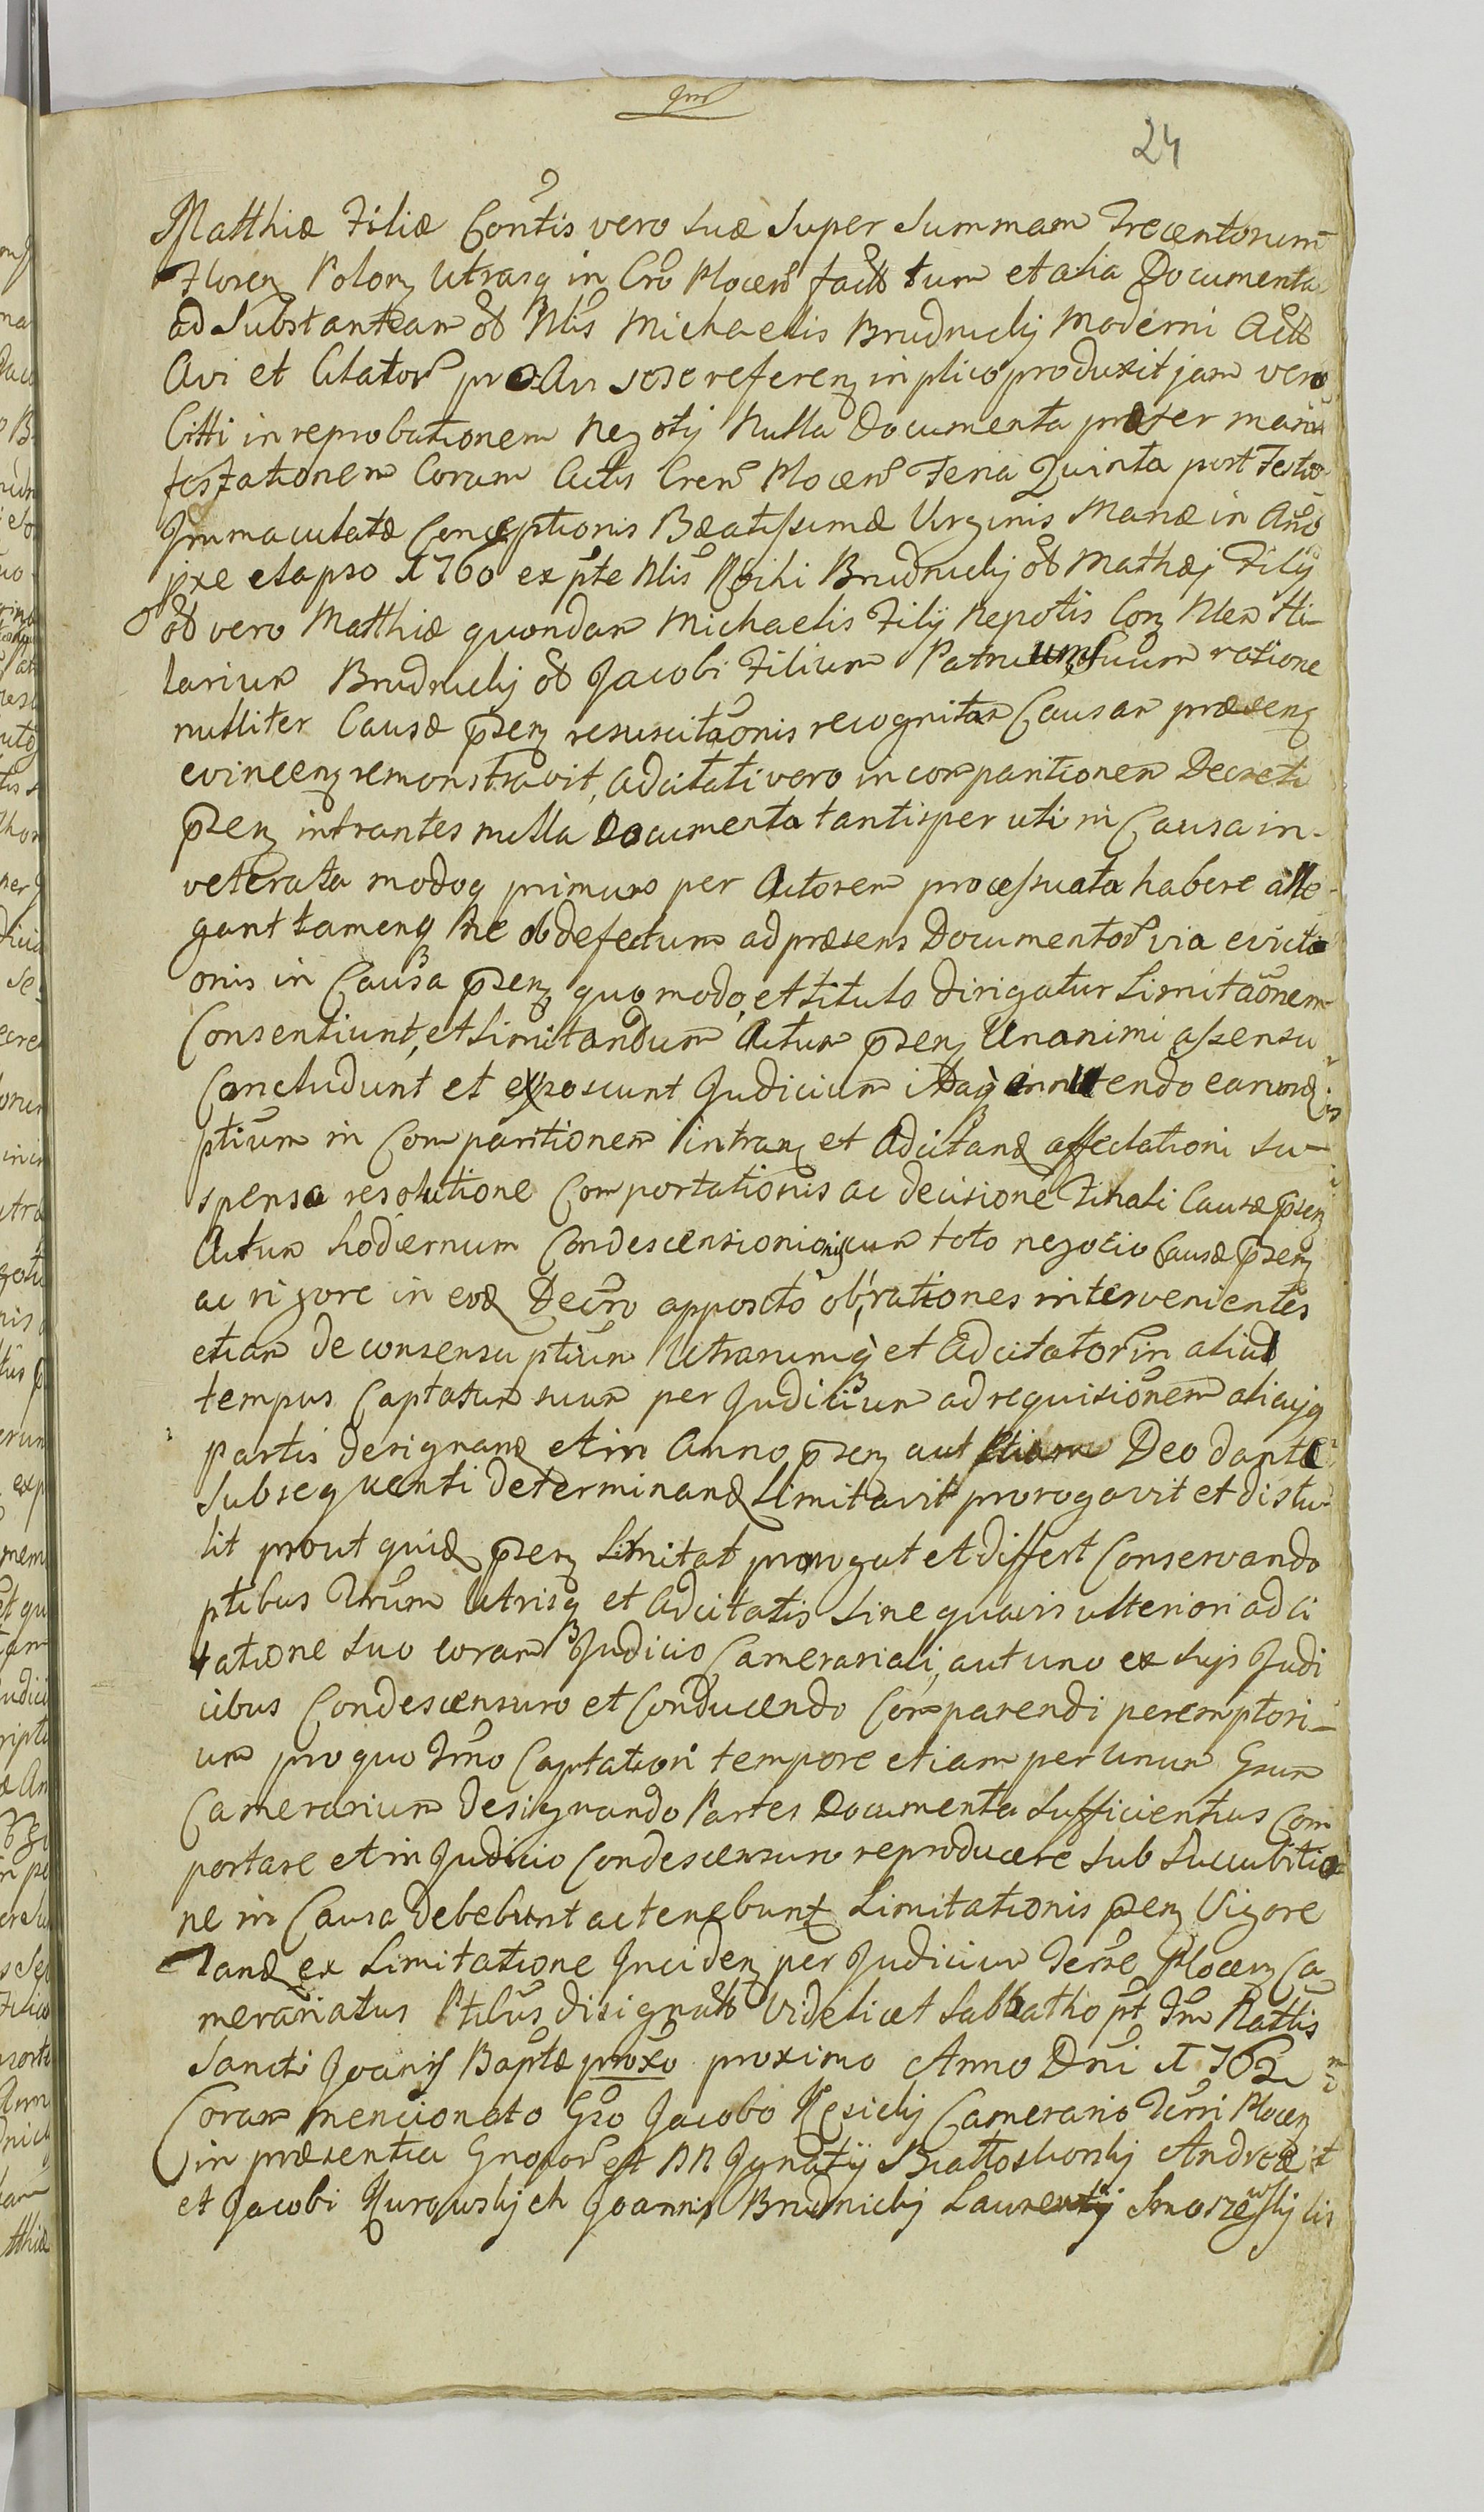 24
Matthiæ Filiæ Contis vero suæ Super Summam Trecentorum
Floren Polon Utrasq in Cro Plocen fact tum et alia Documenta
ad Substantiam ob Nlis Michaelis Brudnickj Moderni Act
Avi et Citator pro Avi sese referen in plico produxit jam vero
Citti in reprobationem Negotij Nulla Documenta præter mani
festationem Coram Actis Cren Plocen Feria Quinta post Festū
Immaculatæ Conceptionis Beatissimæ Virginis Mariæ in Año
pxe elapso 1760 ex pte Nlis Rochi Brudnickj ob Mathæj Filij
ob vero Matthiæ quondam Michaelis Filij Nepotis Con Nlem Hi-
larium Brudnickj ob Jacobi Filium Patruum Suum ratione
nulliter Causæ psen resuscitāonis recognitam Causam præsen
evincen remonstravit, adcitati vero in comparitionem Decreti
psen intrantes nulla Documenta tantisper uti in Causa in-
veterata modoq primum per Actorem processuata habere alle-
gant tamenq ne ob defectum ad præsens Documentor via evicti
onis in Causa psen quo modo, et titulo dirigatur Limitāonem
Consentiunt, et Limitandum Actum psen Unanimi assensu
Concludunt et exposcunt Judicium itaq̀ innitendo earund
ptium in Comparitionem intran et Adcitand affectationi su-
spensa resolutione Comportationis ac decisione Finali Causæ psen
Actum hodiernum Condescensionis cum toto negotio Causæ psen
ac rigore in eod Decro apposito ob rationes intervenientes
etiam de consensu ptium Utrarumq̀ et Adcitator in aliud
tempus Captatum suum per Judicium ad requisitionem alicujq
Partis designand et in Anno psen aut etiam Deo dante
Subsequenti determinand Limitavit prorogavit et distu-
lit prout quid psen Limitat prorogat et differt Conservando
ptibus Trum Utrisq et Adcitatis Sine quavis ulteriori adci
tatione suo coram Judicio Camerariali, aut uno ex Sujs Judi
cibus Condescensuro et Conducendo Comparendi peremptori-
um pro quo Tmo Captatori tempore etiam per Unum Gsum
Camerarium designando Partes Documenta Sufficientius Com
portare et in Judicio Condescensuro reproducere Sub Succubitio
ne in Causa debebunt ac tenebunt Limitationis psen Vigore
Tand ex Limitatione Inciden per Judicium Terræ Plocen Ca
merariatus Ptibus disignatt Videlicet Sabbatho pt Fm Nattis
Sancti Joannis Baptæ proxo proximo Anno Dni 1762
Coram mencionato Gso Jacobo Camerario Terri Plocen
in præsentia Gnosor et NN Ignatij Białłoskorskj Andreæ
et Jacobi Joannis Brudnickj Laurentij